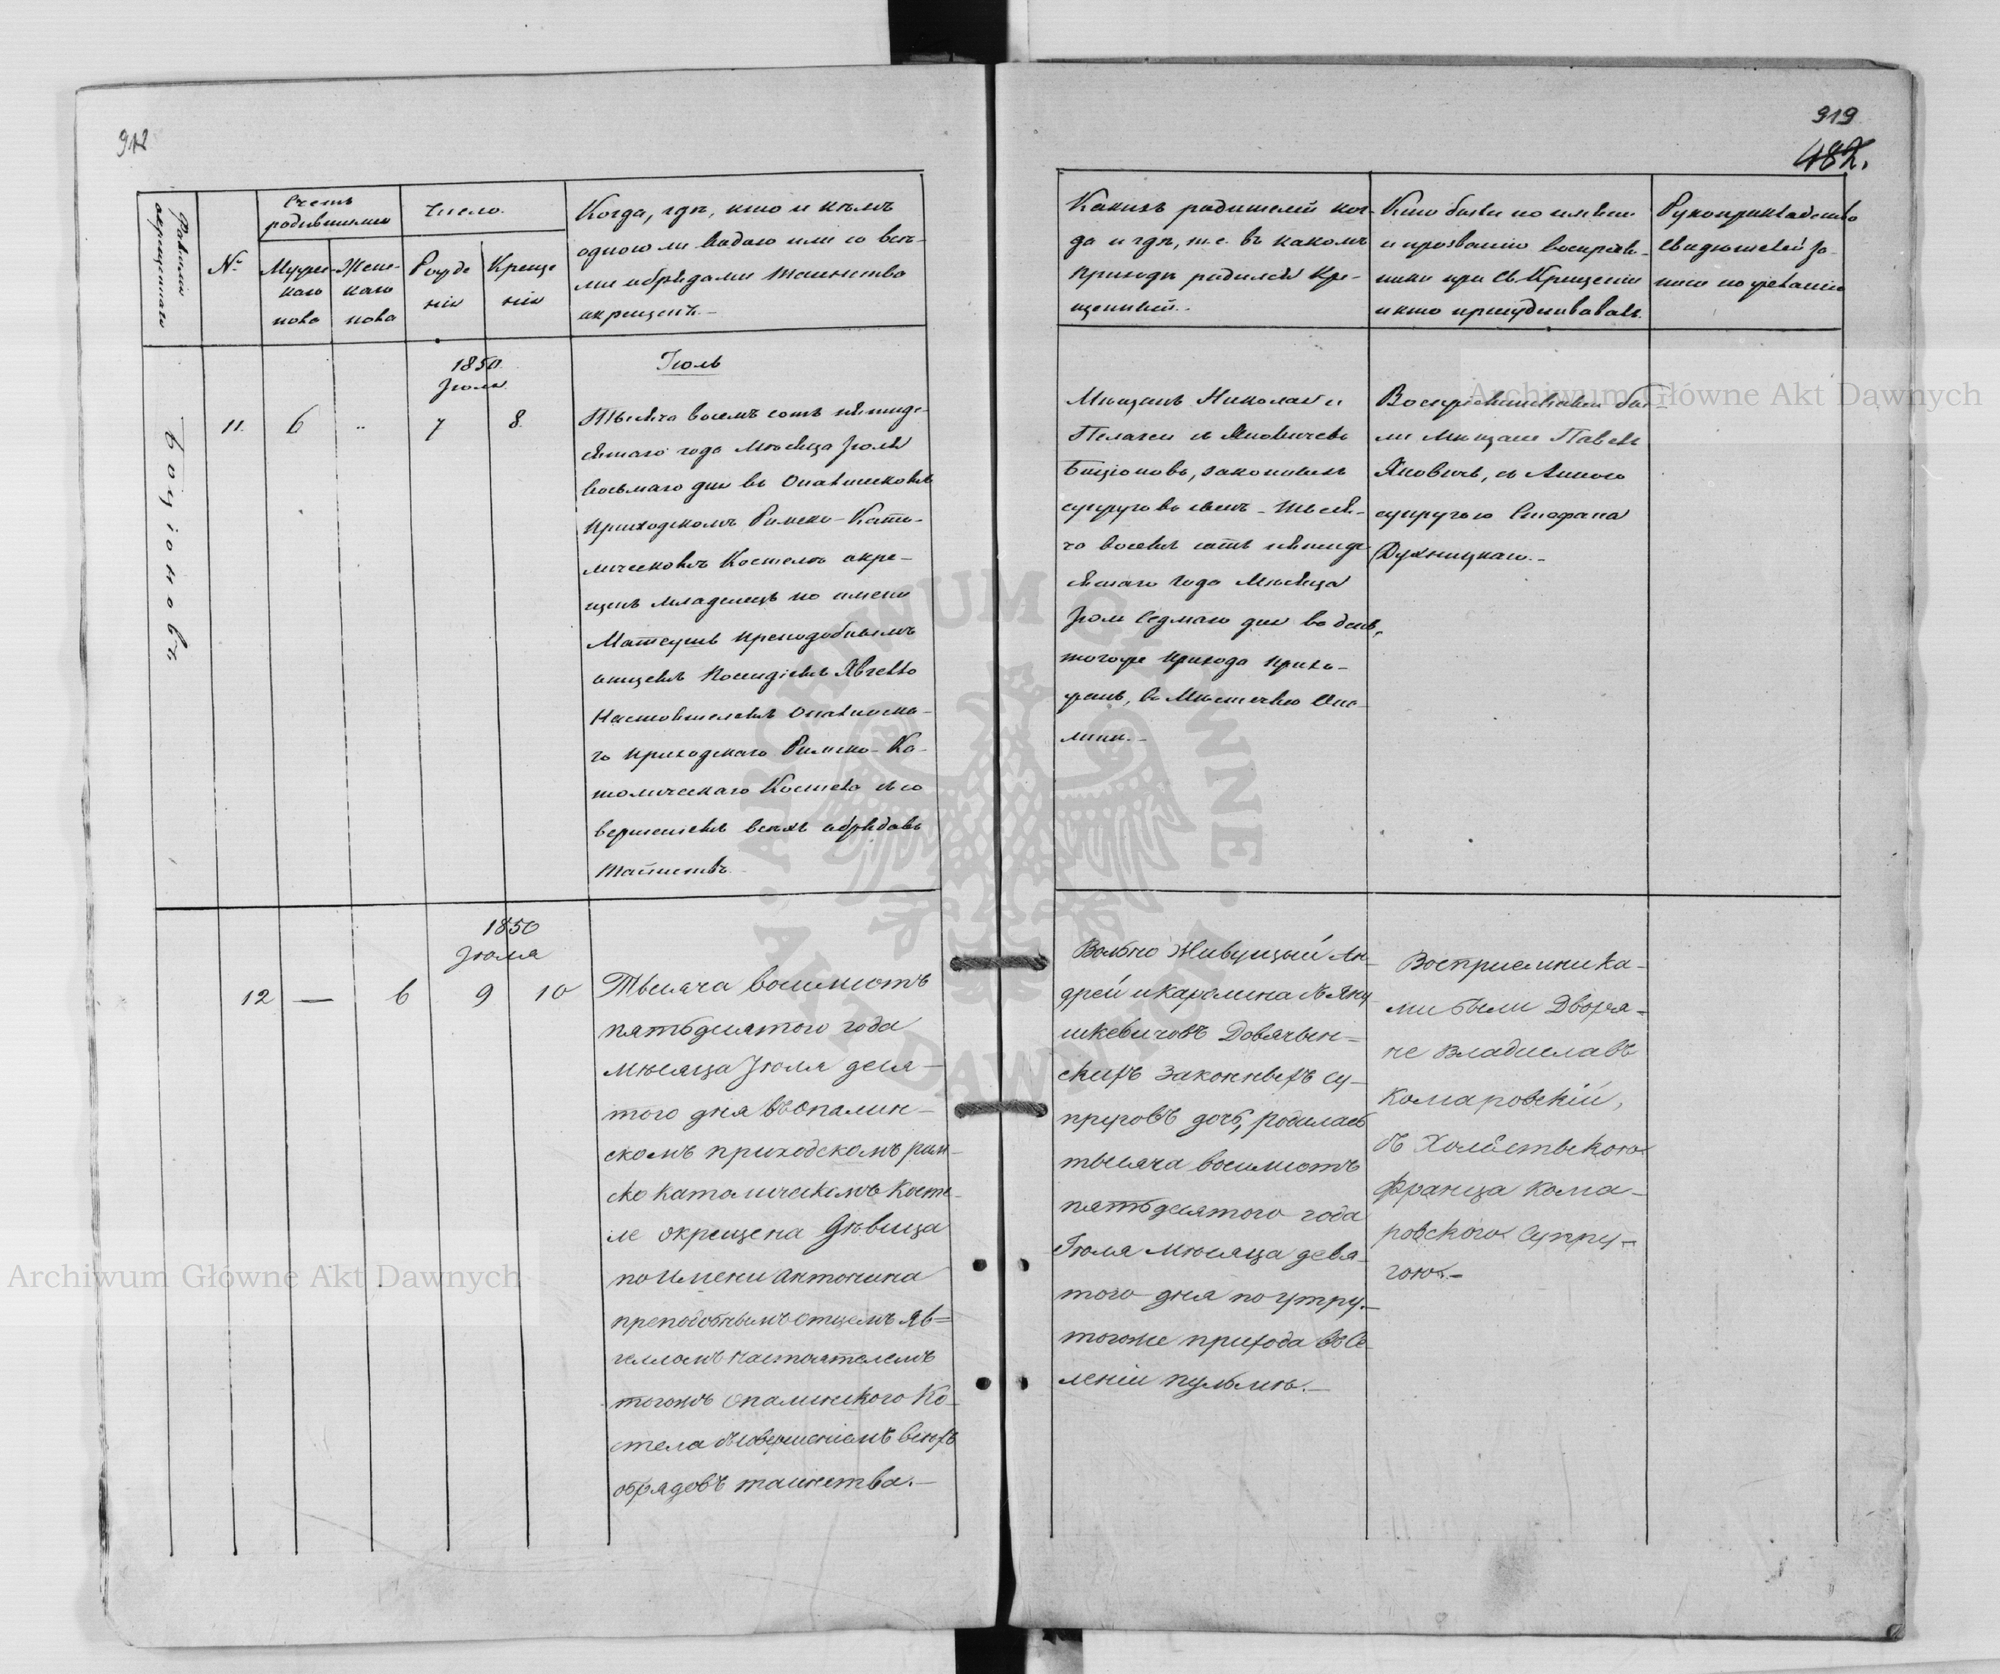 912
919
482.
Фамилія
окрещеннаго
№
Счетъ
родившихся
Мужес-
каго
пола
Жене-
каго
пола
Число.
Рожде
нія
Креще
нія
Когда, гдѣ, кто и кѣмъ
одною ли водою или со всѣ-
ми обрядами таинства
окрещенъ.-
Какихъ родителей ког-
да и гдѣ, т.е. въ какомъ
приходѣ родился Кре-
щенный.-
Кто были по имени
и прозванію воспріем-
ники при Св. Крещеніи
и кто присудствовалъ.
Рукоприкладство
Свидѣтелей
Боціоновъ
11.
6
"
1850
Іюля
7
8
Іюль
Тысяча восемъ сотъ пятиде-
сятаго года Мѣсяца Іюля
восьмаго дня въ Опалинскомъ
приходскомъ Римско-Като-
лическомъ Костелѣ окре-
щенъ младенецъ по имени
Матеушъ преподобнымъ
отцемъ
Настоятелемъ Опалинска-
го приходскаго Римско-Ка-
толическаго Костела съ со
вершеніемъ всѣхъ обрядовъ
Таинствъ.
Мѣщанъ Николая и
Пелагеи съ Яновичевъ
Боціоновъ, законныхъ
супруговъ сынъ - тыся-
ча восемь сотъ пятиде
сятаго года Мѣсяца
Іюля седмаго дня
тогоже прихода прихо-
жанъ, въ Мѣстечкѣ Опа-
линѣ.-
Воспріемниками бы-
ли Мѣщане Павелъ
Яновичъ, съ Анною
супругою Стефана
Духницкаго.-
12
—
6
1850
Іюля
9
10
Тысяча восимсотъ
пятьдесятого года
мѣсяца Іюля деся-
того дня въ Опалин-
скомъ приходскомъ рим-
ско католическомъ Косте-
ле окрещена Дѣвица
по имени Антонина
преподобнымъ отцемъ Яв=
гелломъ настоятелемъ
тогожъ Опалинского Ко-
стела съ совершеніемъ всѣхъ
обрядовъ таинства.-
Вольно Живущый Ан-
дрей и Каролина съ Яну
шкевичовъ Довячын=
скихъ законныхъ су-
пруговъ дочь, родилась
тысяча восимсотъ
пятьдесятого года
Іюля мѣсяца девя-
того дня по утру.-
тогоже прихода въ Се-
леніи Пульмѣ.-
Восприемника-
ми были Дворя-
не Владиславъ
Комаровскій,
съ
Франца Кома-
ровского Супру-
гою.-
Archiwum Główne Akt Dawnych
Archiwum Główne Akt Dawnych
ARCHIWUM GŁÓWNE
AKT DAWNYCH